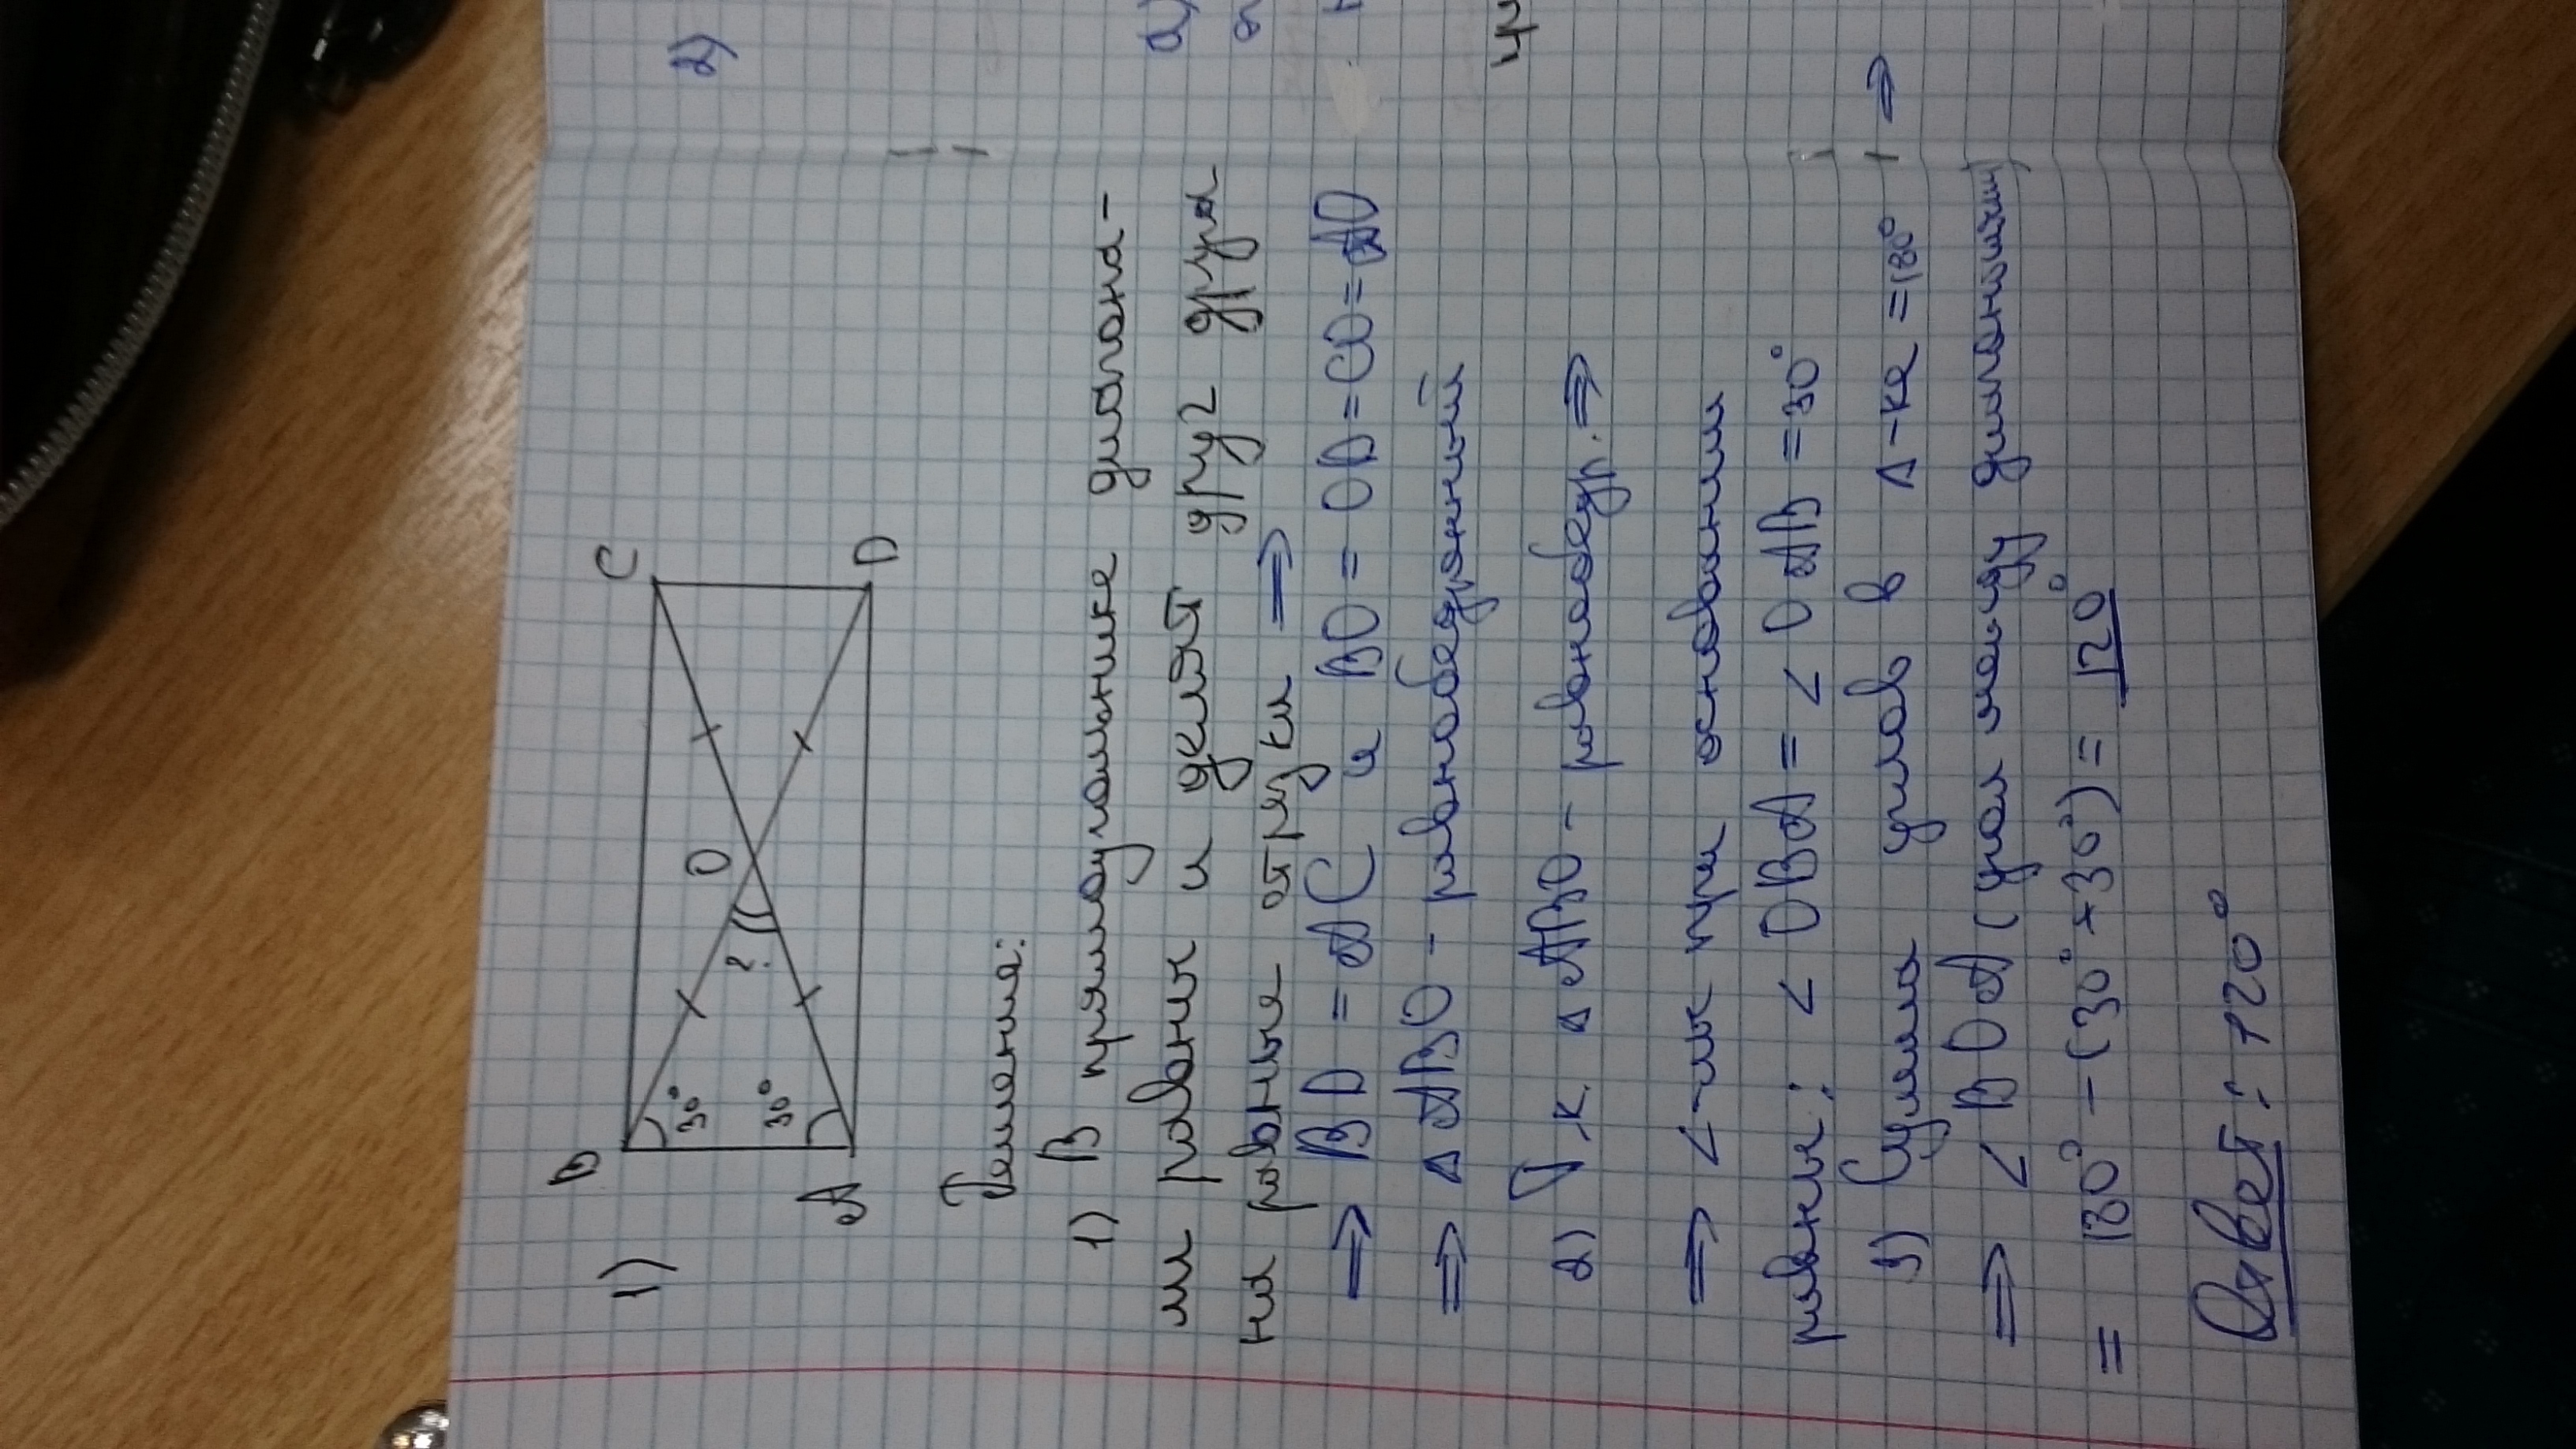 1)
B
C
30°
?
O
30°
A
D
Решение:
1) В прямоугольнике диагона-
ли равны и делят друг друга
на равные отрезки ⇒
⇒ BD = AC и BO = OD = CO = AO
⇒ △ ABO - равнобедренный
2) Т.к. △ ABO - равнобедр. ⇒
⇒ ∠-лы при основании
равны: ∠ OBA = ∠ OAB = 30°
3) Сумма углов в △-ке = 180° ⇒
⇒ ∠ BOA (угол между диагоналями)
= 180° - (30° + 30°) = 120°
Ответ: 120°
2)